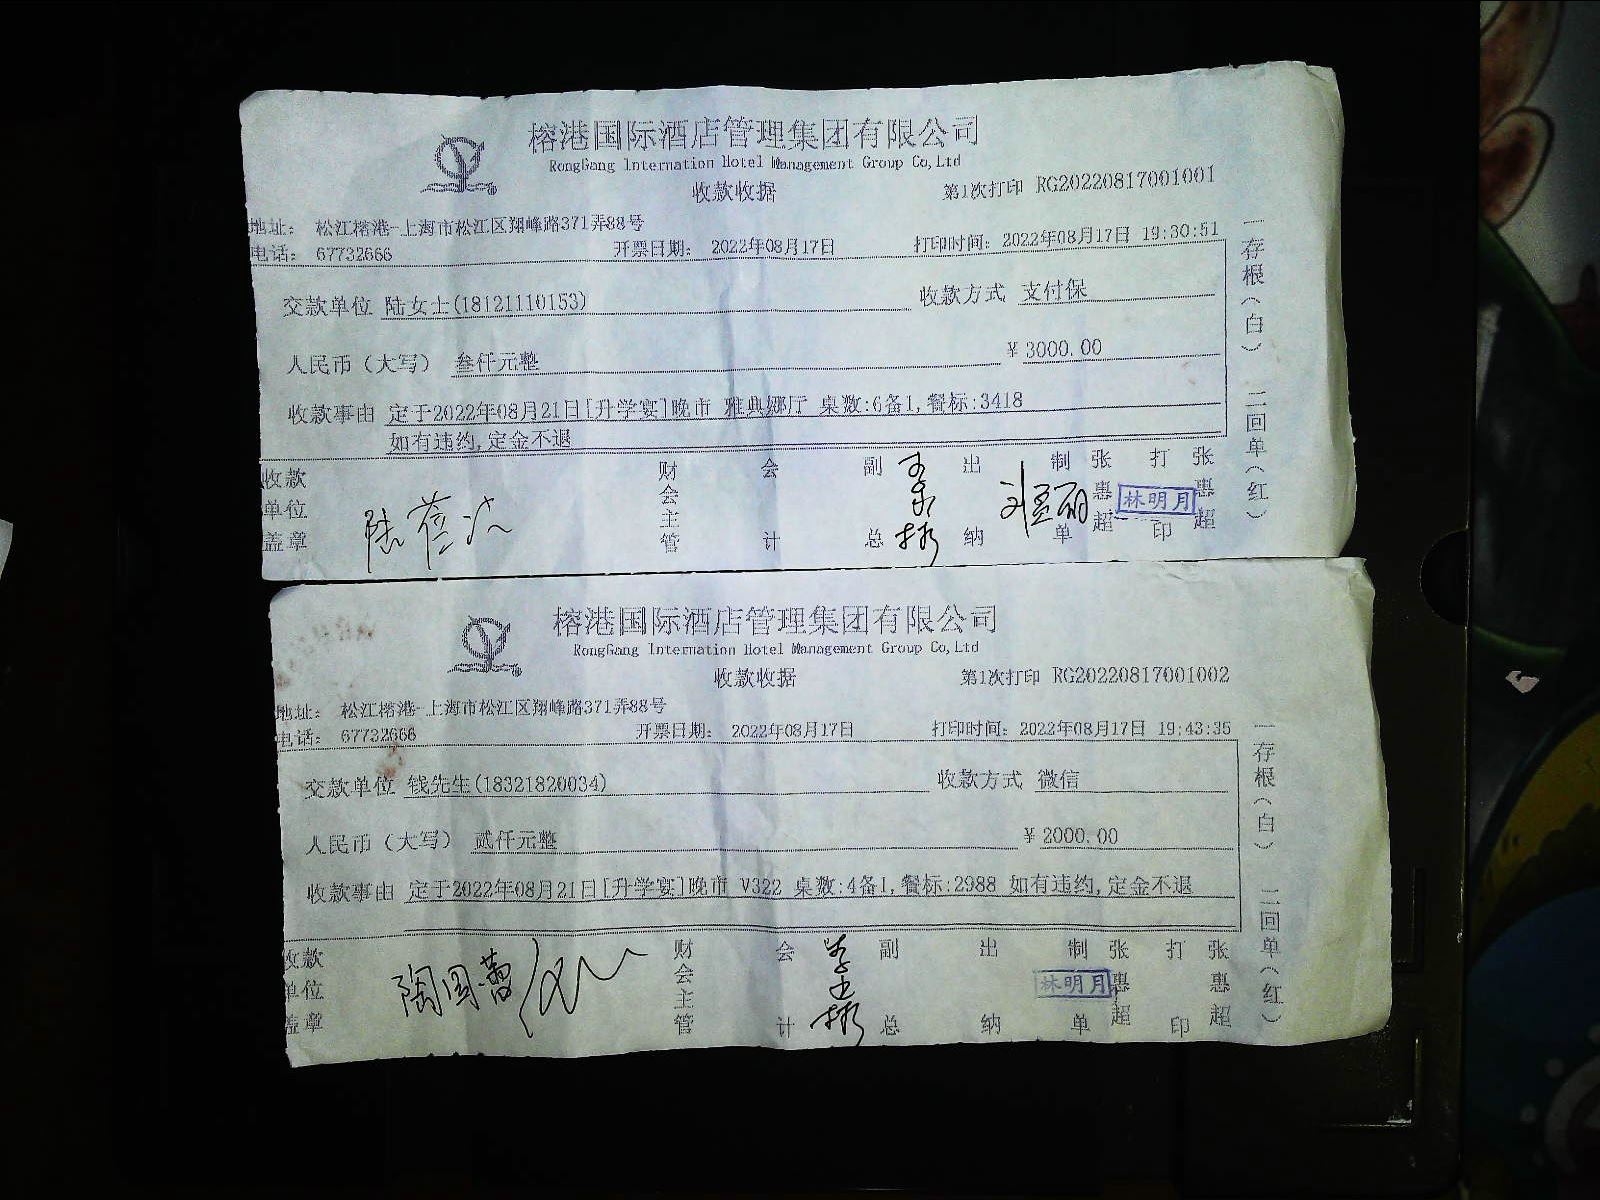 榕港国际酒店管理集团有限公司
RongGang Internation Hotel Management Group Co,Ltd
收款收据 第1次打印 RG20220817001001
地址： 松江榕港-上海市松江区翔峰路371弄88号
电话： 67732666 开票日期： 2022年08月17日 打印时间： 2022年08月17日 19:30:51
交款单位 陆女士(18121110153) 收款方式 支付保
人民币（大写） 叁仟元整 ￥ 3000.00
收款事由 定于2022年08月21日[升学宴]晚市 雅典娜厅 桌数:6备1,餐标:3418
如有违约,定金不退
收款单位盖章 财会主管 会计 副总 出纳 制单 张惠超 打印 张惠超
林明月
一存根（白） 二回单（红）
榕港国际酒店管理集团有限公司
RongGang Internation Hotel Management Group Co,Ltd
收款收据 第1次打印 RG20220817001002
地址： 松江榕港-上海市松江区翔峰路371弄88号
电话： 67732666 开票日期： 2022年08月17日 打印时间： 2022年08月17日 19:43:35
交款单位 钱先生(18321820034) 收款方式 微信
人民币（大写） 贰仟元整 ￥ 2000.00
收款事由 定于2022年08月21日[升学宴]晚市 V322 桌数:4备1,餐标:2988 如有违约,定金不退
收款单位盖章 陶国蕾 财会主管 会计 副总 出纳 制单 张惠超 打印 张惠超
林明月
一存根（白） 二回单（红）